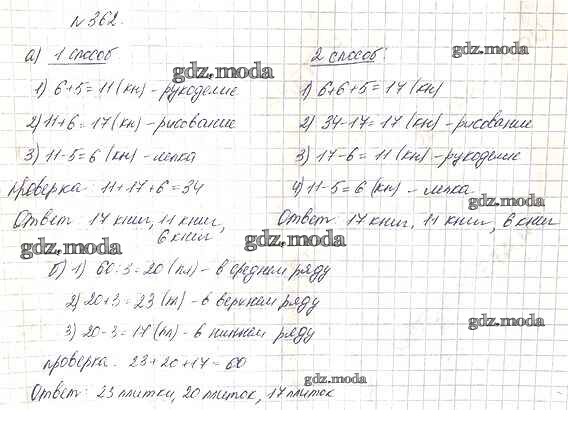 № 362.
а) 1 способ
1) 6+5=11 (кн) - рукоделие
2) 11+6=17 (кн) - рисование
3) 11-5=6 (кн) - лепка
Проверка: 11+17+6=34
Ответ: 17 книг, 11 книг,
6 книг
2 способ:
1) 6+6+5=17 (кн)
2) 34-17=17 (кн) - рисование
3) 17-6=11 (кн) - рукоделие
4) 11-5=6 (кн) - лепка
Ответ: 17 книг, 11 книг, 6 книг
б) 1) 60:3=20 (пл) - в среднем ряду
2) 20+3=23 (пл) - в верхнем ряду
3) 20-3=17 (пл) - в нижнем ряду
Проверка: 23+20+17=60
Ответ: 23 плитки, 20 плиток, 17 плиток
gdz.moda
gdz.moda
gdz.moda
gdz.moda
gdz.moda
gdz.moda
gdz.moda